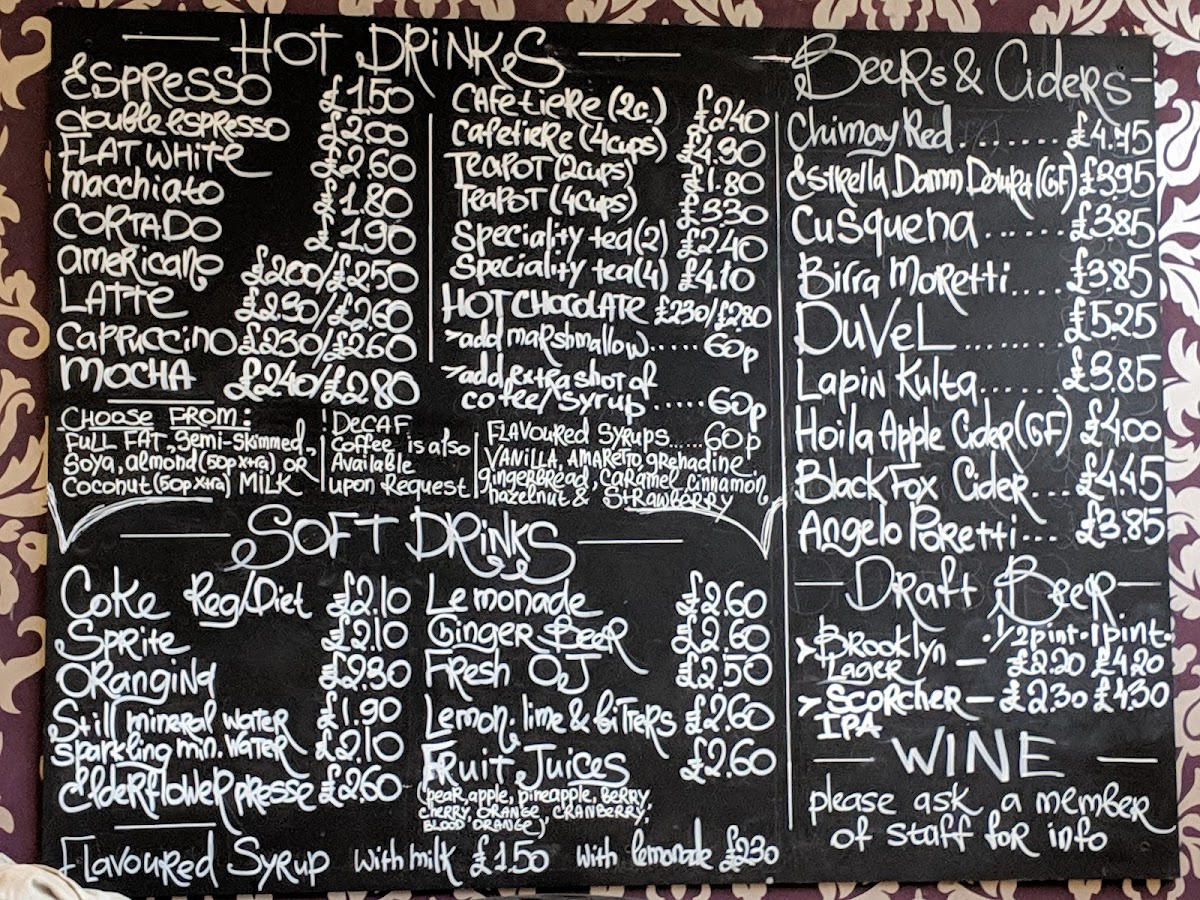 HOT DRINKS
ESPRESSO £1.50
double espresso £2.00
FLAT WHITE £2.60
macchiato £1.80
CORTADO £1.90
americano £2.00/£2.50
LATTE £2.30/£2.60
CAPPUCCINO £2.30/£2.60
MOCHA £2.40/£2.80
CAFETIERE (2c.) £2.40
Cafetiere (4cups) £4.30
TEAPOT (2cups) £1.80
TEAPOT (4cups) £3.30
Speciality tea (2) £2.40
Speciality tea (4) £4.10
HOT CHOCOLATE £2.30/£2.80
add marshmallow..... 60p
add extra shot of
coffee/syrup ..... 60p
CHOOSE FROM:
FULL FAT, Semi-Skimmed,
Soya, almond (50p xtra) OR
Coconut (50p xtra) MILK
! DECAF
Coffee is also
Available
upon Request
FLAVOURED SYRUPS..... 60p
VANILLA, AMARETTO, grenadine
gingerbread, caramel, cinnamon,
hazelnut & STRAWBERRY
SOFT DRINKS
Coke Reg/Diet £2.10
Sprite £2.10
ORANGINA £2.30
Still mineral water £1.90
sparkling min. water £2.10
Elderflower presse £2.60
Lemonade £2.60
Ginger BEER £2.60
Fresh OJ £2.50
Lemon, lime & bitters £2.60
FRUIT JUICES £2.60
(pear, apple, pineapple, BERRY,
CHERRY, ORANGE, CRANBERRY,
BLOOD ORANGE)
Flavoured Syrup with milk £1.50 with lemonade £2.30
Beers & Ciders
Chimay Red ........ £4.75
Estrella Damm Daura (GF) £3.95
Cusquena ...... £3.85
Birra Moretti .... £3.85
DuVeL ........ £5.25
Lapin Kulta ...... £3.85
Hoila Apple Cider (GF) £4.00
Black Fox Cider ... £4.45
Angelo Poretti ... £3.85
Draft Beer
1/2 pint . 1 pint
BROOKLYN LAGER — £2.20 £4.20
SCORCHER IPA — £2.30 £4.30
WINE
please ask a member
of staff for info